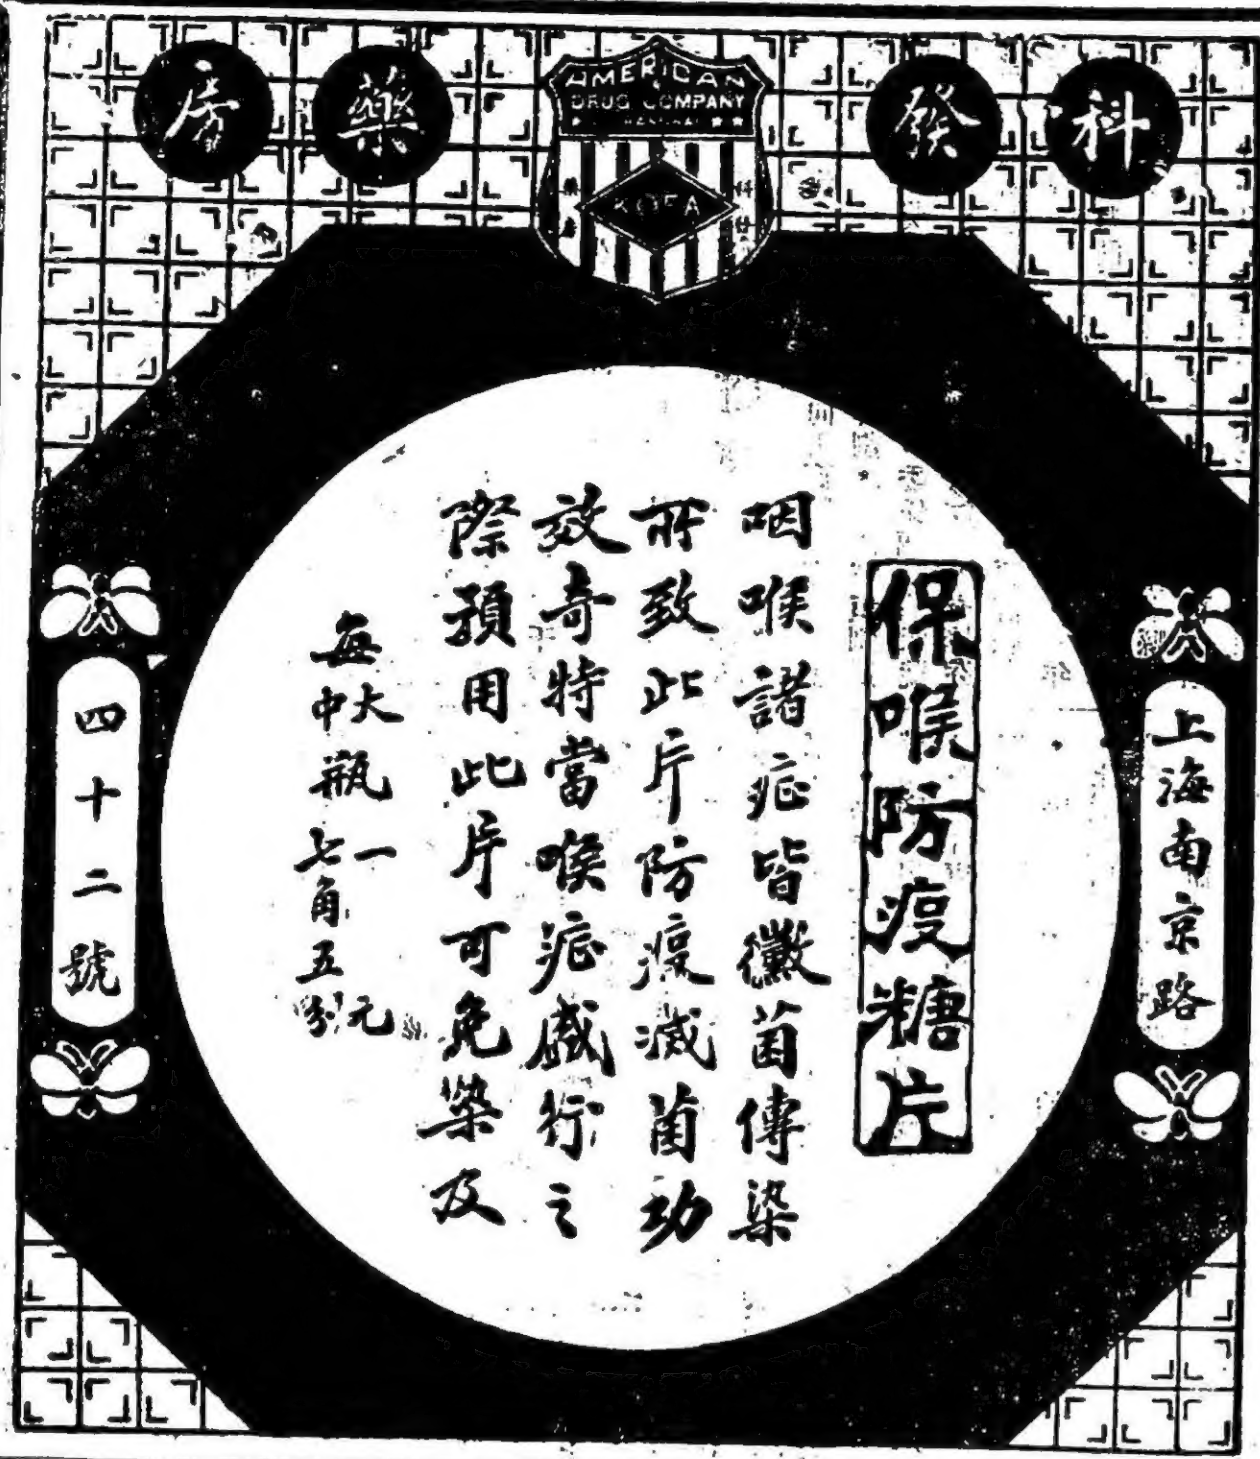 科發藥房
AMERICAN
DRUG COMPANY
SHANGHAI
KOFA
科發
藥房
上海南京路
四十二號
保喉防疫糖片
咽喉諸症皆黴菌傳染
所致此片防疫滅菌功
效奇特當喉症盛行之
際預用此片可免染及
每大瓶一元
中瓶七角五分